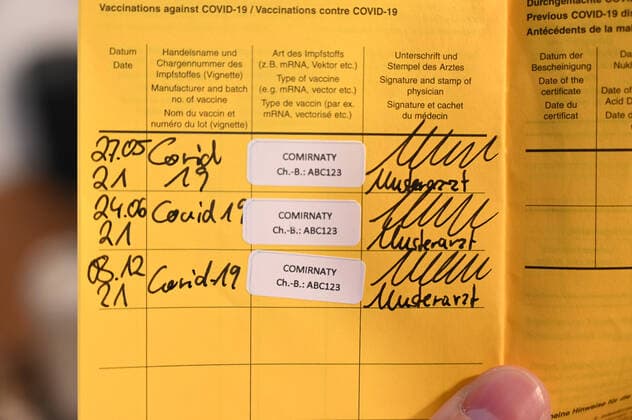 Vaccinations against COVID-19 / Vaccinations contre COVID-19
Datum
Date
Handelsname und
Chargennummer des
Impfstoffes (Vignette)
Manufacturer and batch
no. of vaccine
Nom du vaccin et
numéro du lot (vignette)
Art des Impfstoffs
(z.B. mRNA, Vektor etc.)
Type of vaccine
(e.g. mRNA, vector etc.)
Type de vaccin (par ex.
mRNA, vectorisé etc.)
Unterschrift und
Stempel des Arztes
Signature and stamp of
physician
Signature et cachet
du médecin
27.05
21
Covid
19
COMIRNATY
Ch.-B.: ABC123
Musterarzt
24.06
21
Covid 19
COMIRNATY
Ch.-B.: ABC123
Musterarzt
03.12
21
Covid-19
COMIRNATY
Ch.-B.: ABC123
Musterarzt
Durchgemachte COVID-19
Previous COVID-19 di
Antécédents de la ma
Datum der
Bescheinigung
Date of the
certificate
Date du
certificat
Date
Acid D
Date c
eine Hinweise für die